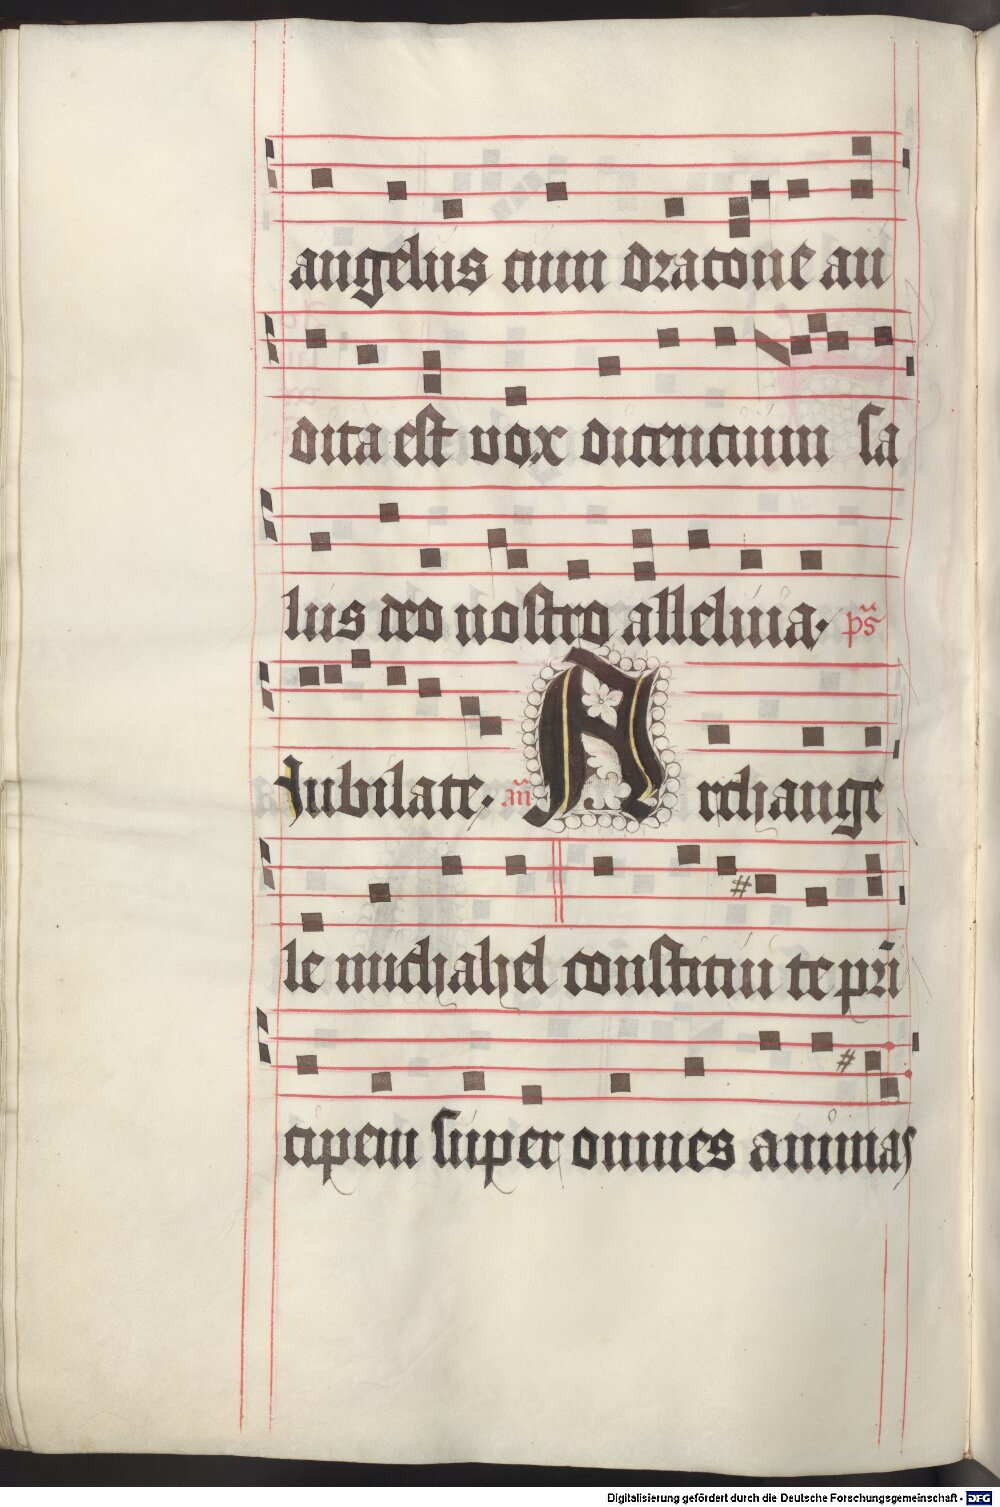 angelus cum dracone au
dita est vox dicencium sa
lus deo nostro alleluia. ps̄
Iubilate. an̄ Archange
le michahel constitui te prī
cipem super omnes animas
Digitalisierung gefördert durch die Deutsche Forschungsgemeinschaft - DFG